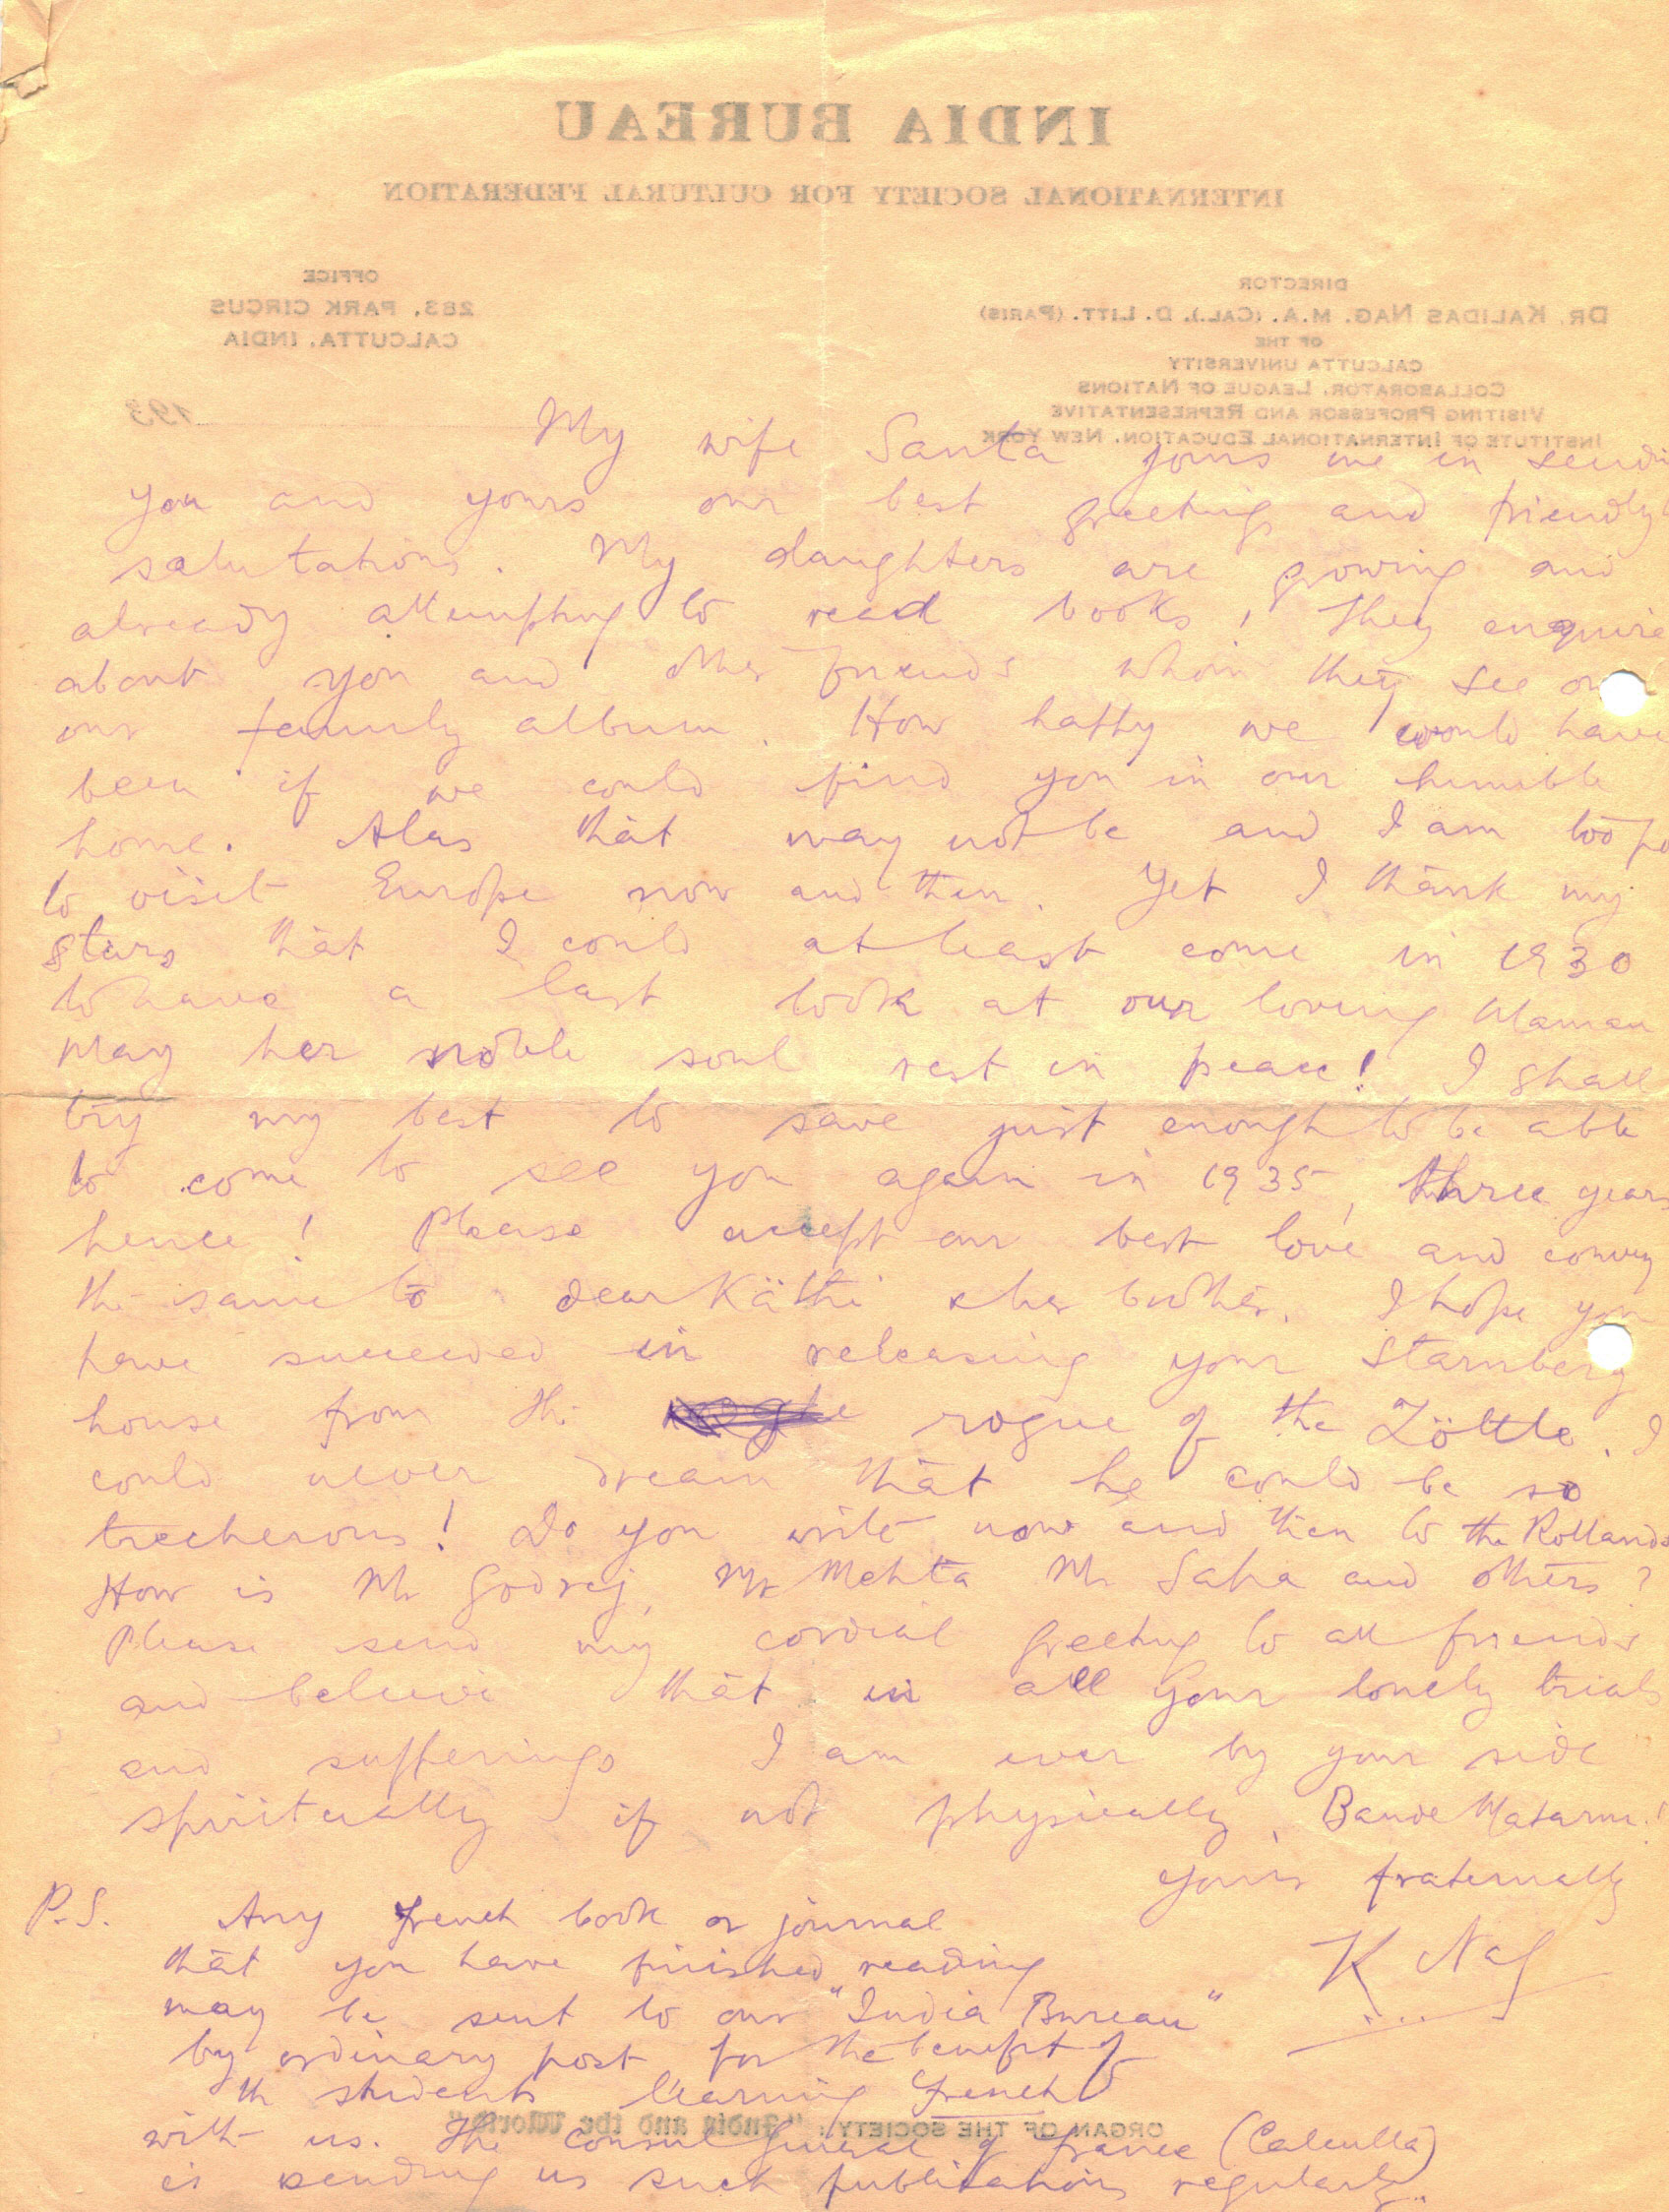 INDIA BUREAU
INTERNATIONAL SOCIETY FOR CULTURAL FEDERATION
OFFICE
283, PARK CIRCUS
CALCUTTA, INDIA
DIRECTOR
DR. KALIDAS NAG, M.A. (CAL.), D. LITT. (PARIS)
OF THE
CALCUTTA UNIVERSITY
COLLABORATOR, LEAGUE OF NATIONS
VISITING PROFESSOR AND REPRESENTATIVE
INSTITUTE OF INTERNATIONAL EDUCATION, NEW YORK
193
My wife Santa joins me in sendi
you and yours our best greetings and friendly
salutations. My daughters are growing and
already attempting to read books! They enquire
about you and other friends whom they see on
our family album. How happy we would have
been if we could find you in our humble
home. Alas that may not be and I am too po
to visit Europe now and then. Yet I thank my
stars that I could at least come in 1930
to have a last look at our loving Maman
May her noble soul rest in peace! I shall
try my best to save just enough to be able
to come to see you again in 1935, three years
hence! Please accept our best love and convey
the same to dear Käthi & her brother. I hope you
have succeeded in releasing your Starnberg
house from the rogue of the Zöttle. I
could never dream that he could be so
trecherous! Do you write now and then to the Rollands
How is Mr Godrej, Mr Mehta Mr Saha and others?
Please send my cordial greeting to all friends
and believe that in all your lonely trials
and sufferings I am ever by your side
spiritually if not physically. Bande Mataram!
Yours fraternally
K Nag
P.S. Any French book or journal
that you have finished reading
may be sent to our "India Bureau"
by ordinary post for the benefit of
the students learning French
with us. The Consul General of France (Calcutta)
is sending us such publications regularly.
ORGAN OF THE SOCIETY: "India and the World"